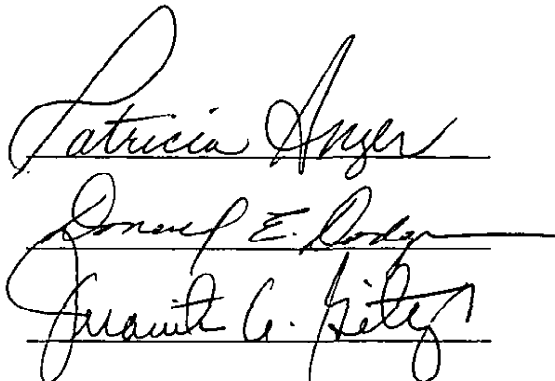 Patricia Anger
Donald E. Dodge
Juanita A.